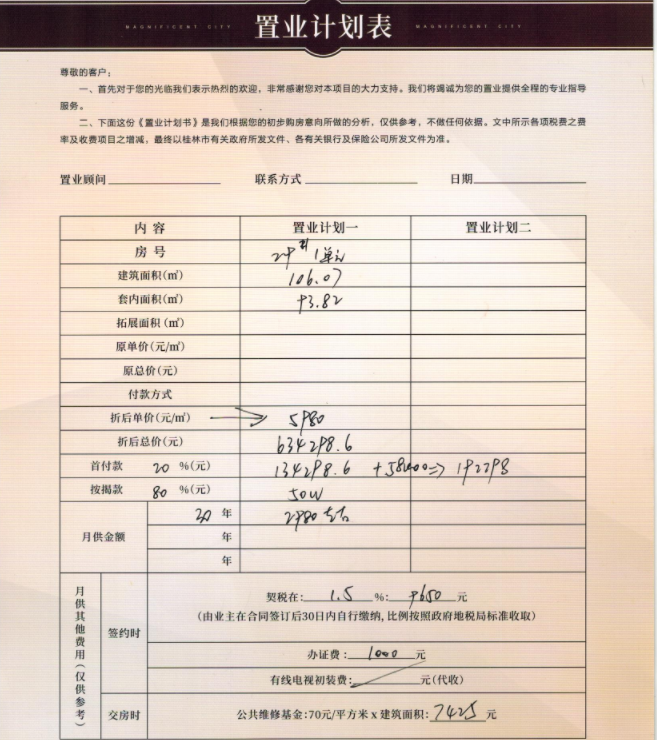 MAGNIFICENT CITY 置业计划表 MAGNIFICENT CITY
尊敬的客户：
一、首先对于您的光临我们表示热烈的欢迎，非常感谢您对本项目的大力支持。我们将竭诚为您的置业提供全程的专业指导
服务。
二、下面这份《置业计划书》是我们根据您的初步购房意向所做的分析，仅供参考，不做任何依据。文中所示各项税费之费
率及收费项目之增减，最终以桂林市有关政府所发文件、各有关银行及保险公司所发文件为准。
置业顾问 联系方式 日期
内容 置业计划一 置业计划二
房号 1单元
建筑面积(㎡) 106.07
套内面积(㎡) 93.82
拓展面积(㎡)
原单价(元/㎡)
原总价(元)
付款方式
折后单价(元/㎡) → 5980
折后总价(元) 634298.6
首付款 20 %(元) 134298.6 +58000=> 192298
按揭款 80 %(元) 50W
月供金额 年 2980左右
年
年
月供其他费用(仅供参考)
签约时
契税在: 1.5 %: 9650 元
(由业主在合同签订后30日内自行缴纳,比例按照政府地税局标准收取)
办证费: 1000 元
有线电视初装费: 元(代收)
交房时 公共维修基金:70元/平方米 x 建筑面积: 7425 元